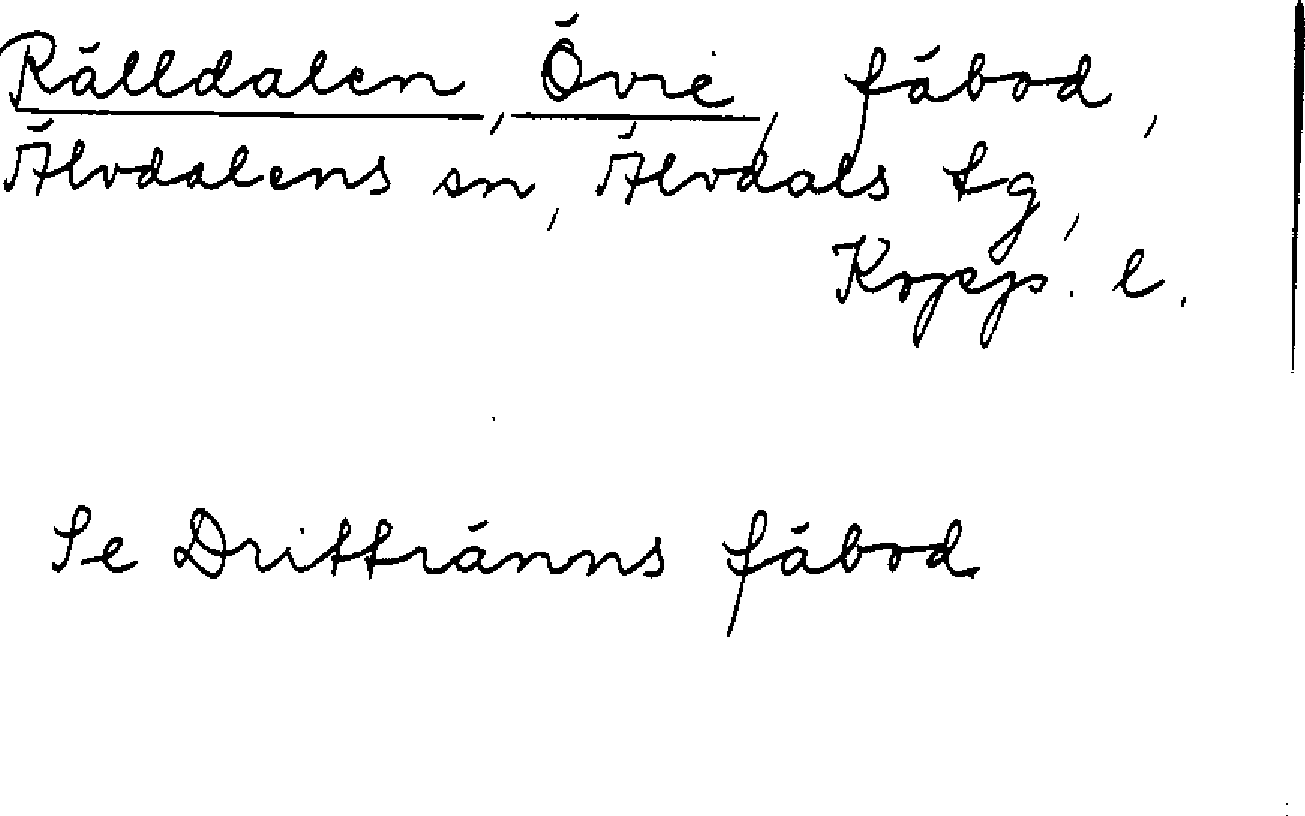 Rälldalen, Övre, fäbod,
Älvdalens sn, Älvdals tg,
Kopp. l.
Se Drittränns fäbod